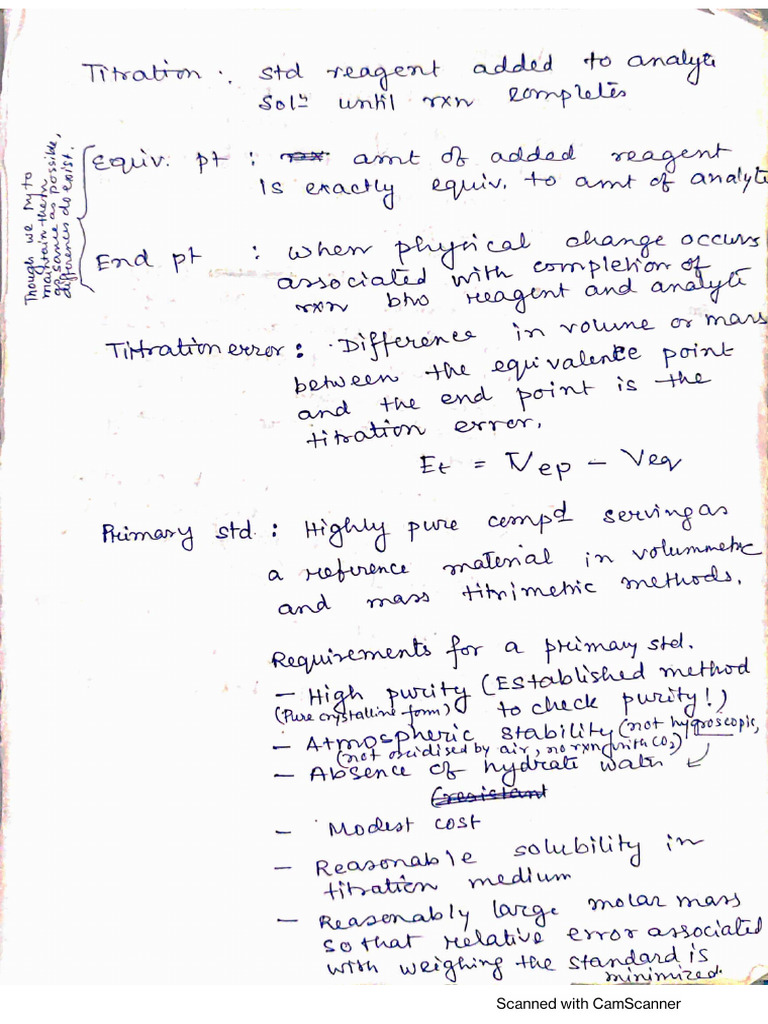 Titration : std reagent added to analyte
solⁿ until rxn completes
Equiv. pt : rxn amt of added reagent
is exactly equiv. to amt of analyte
Though we try to
maintain them
as same as possible,
differences do exist.
End pt : When physical change occurs
associated with completion of
rxn btw reagent and analyte
Titration error : Difference in volume or mass
between the equivalence point
and the end point is the
titration error.
Et = Vep – Veq
Primary std. : Highly pure compd serving as
a reference material in volummetric
and mass titrimetric methods.
Requirements for a primary std.
– High purity (Established method
(Pure crystalline form) to check purity!)
– Atmospheric stability (not hygroscopic,
(not oxidised by air, no rxn with CO₂)
– Absence of hydrate water
(resistant
– Modest cost
– Reasonable solubility in
titration medium
– Reasonably large molar mass
so that relative error associated
with weighing the standard is
minimized.
Scanned with CamScanner